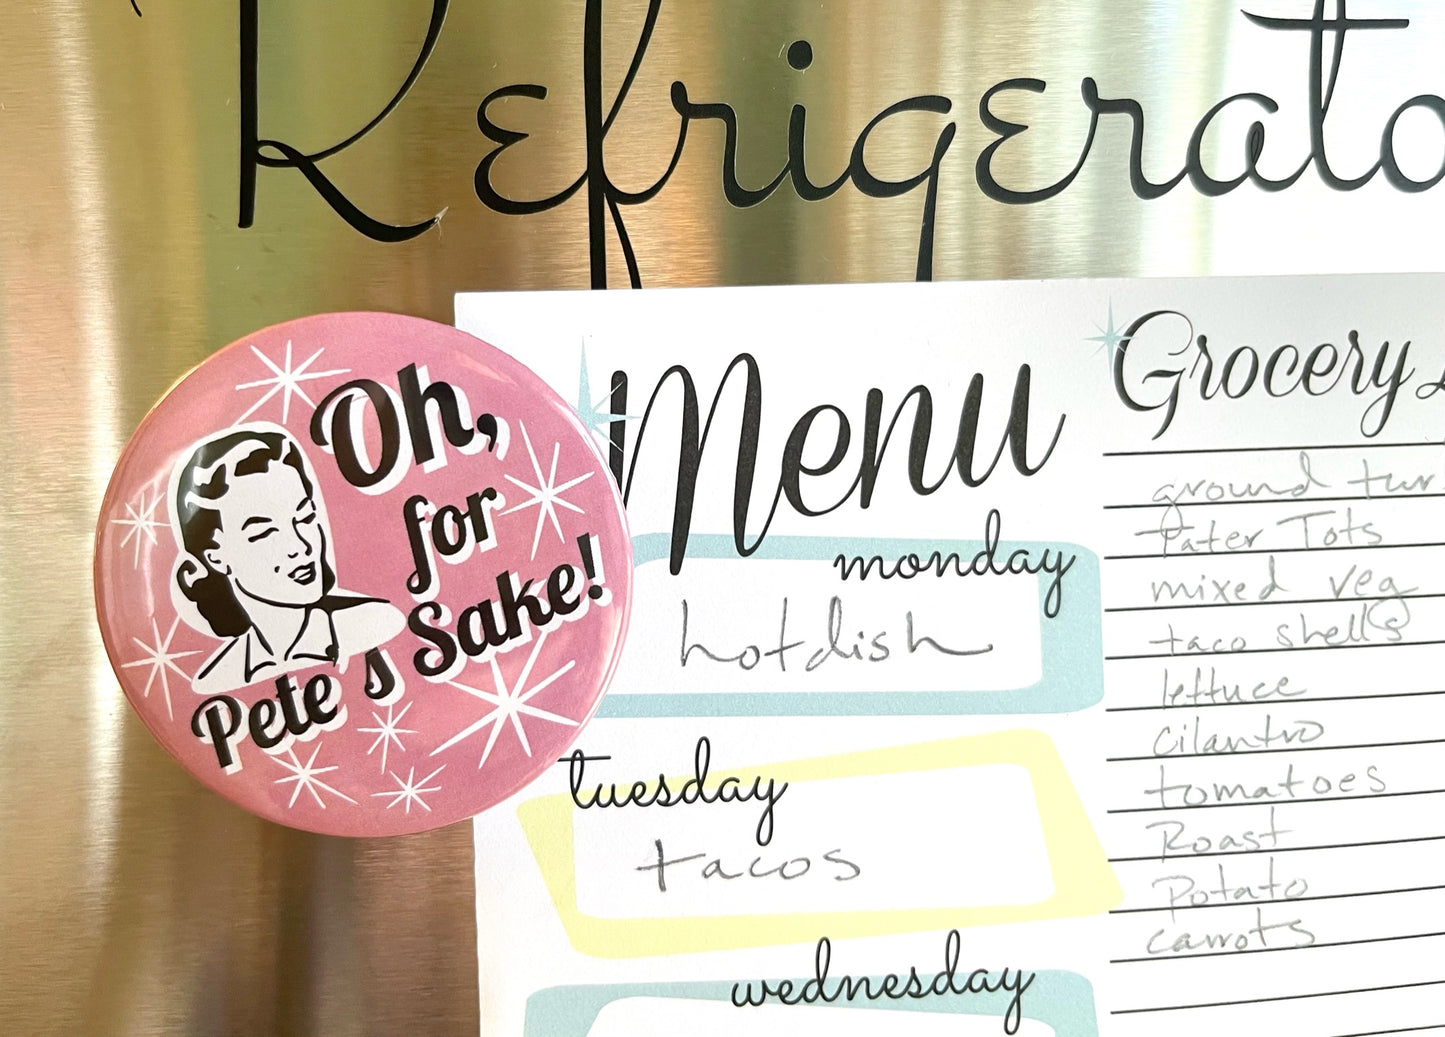 Refrigerato
Oh,
for
Pete's Sake!
Menu
monday
hotdish
tuesday
tacos
wednesday
Grocery
ground tur
Tater Tots
mixed veg
taco shells
lettuce
cilantro
tomatoes
Roast
Potato
carrots